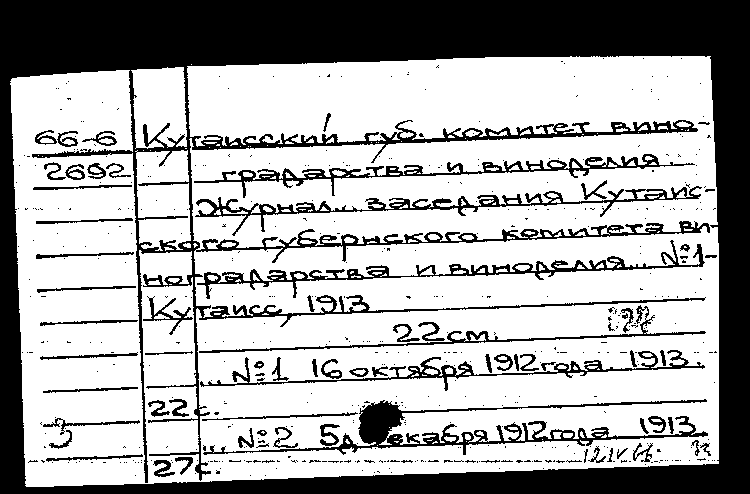 66-6 Кутаисский губ. комитет вино-
2692 градарства и виноделия.
Журнал... заседания Кутаис-
ского губернского комитета ви-
ноградарства и виноделия... №1-
Кутаисс, 1913
22см.
... №1 16 октября 1912 года. 1913.
22с.
3 ... №2 5 декабря 1912 года 1913
27с. 12.IV.66.